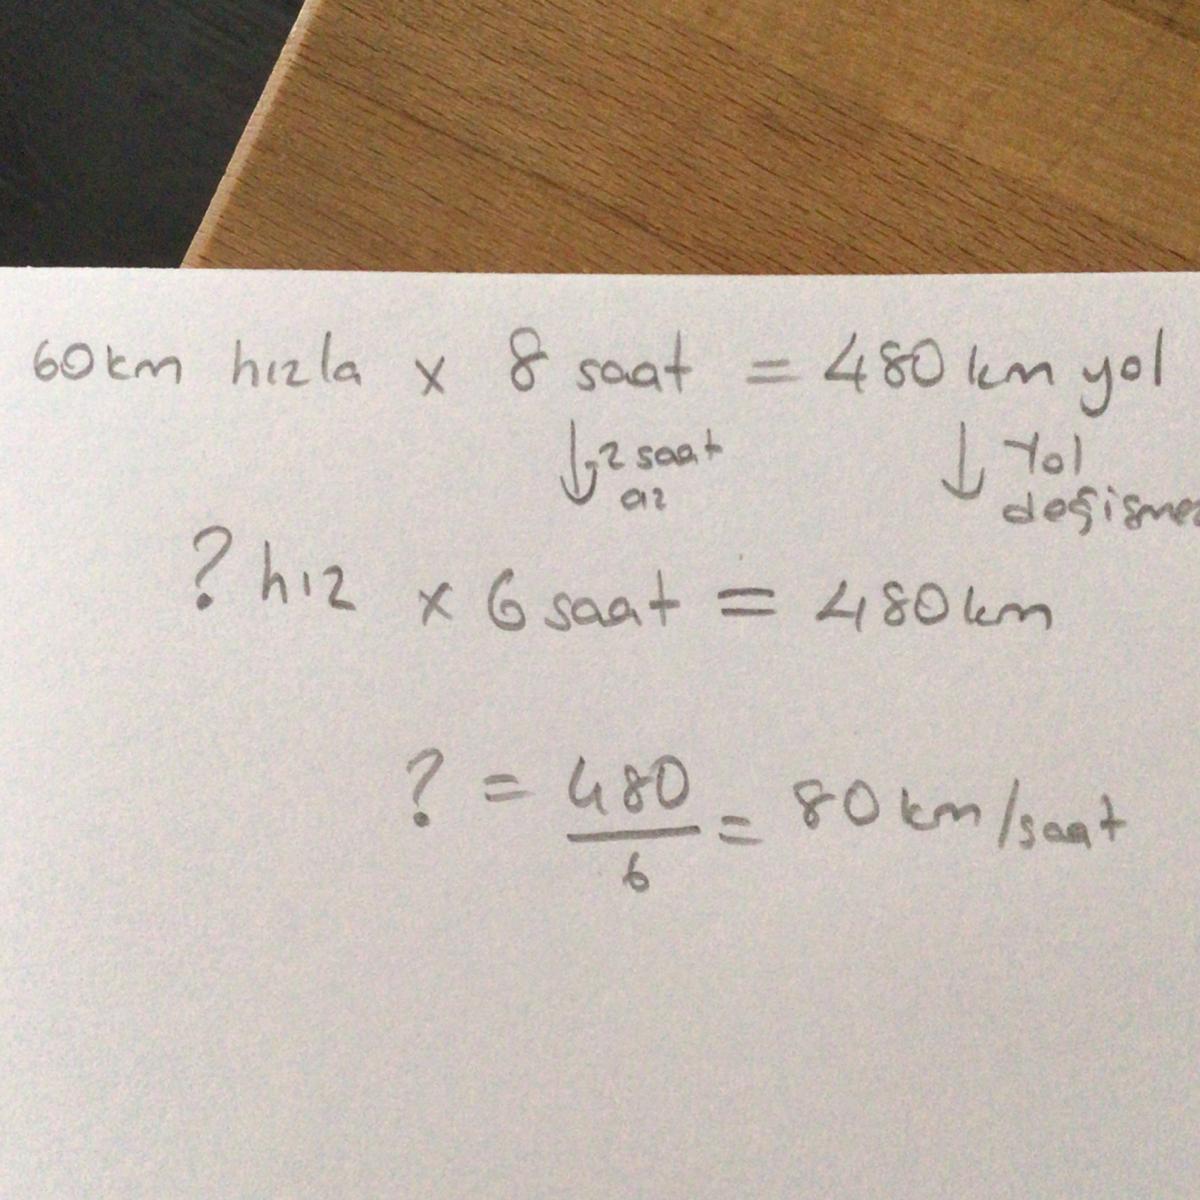 60km hızla x 8 saat = 480 km yol
↓ 2 saat az ↓ Yol değişmez
? hız x 6 saat = 480km
? = 480/6 = 80 km/saat